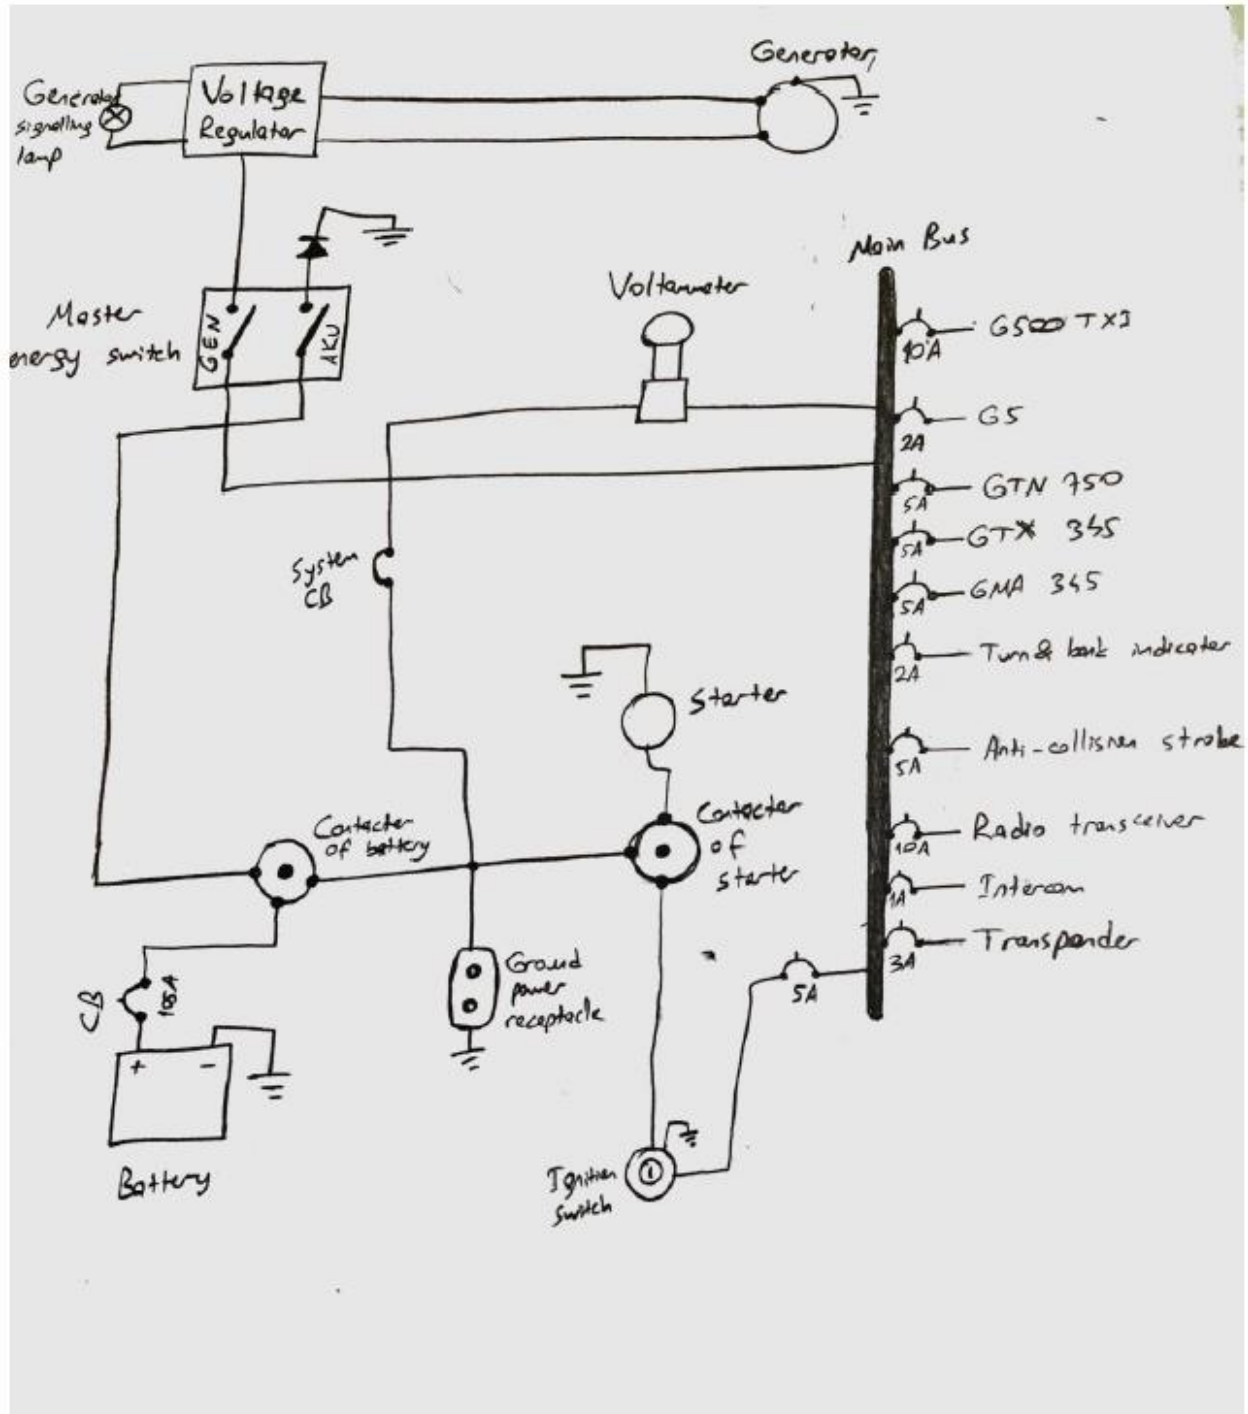 Generator
signalling
lamp
Voltage
Regulator
Generator
Master
energy switch
GEN
AKU
Voltammeter
Main Bus
10A
G500 TXI
2A
G5
5A
GTN 750
5A
GTX 345
5A
GMA 345
2A
Turn & bank indicator
5A
Anti-collision strobe
10A
Radio transceiver
1A
Intercom
3A
Transponder
5A
System
CB
Starter
Contacter
of battery
Contacter
of
starter
Ground
power
receptacle
CB
+
-
Battery
Ignition
switch